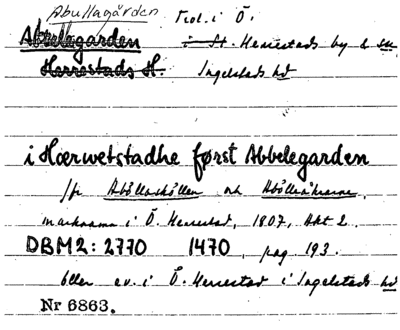 Abullagården Trol. i Ö.
Abbelegarden i St. Herrestads by & sn
Herrestads H. Ingelstads hd
i Hærwetstadhe først Abbelegarden
jfr Aböllaskiöllen och Abölleåkrarne,
marknamn i Ö. Herrestad, 1807, Akt 2.
DBM2: 2770 1470, pag 193.
eller ev. i Ö. Herrestad i Ingelstads hd
Nr 6863.